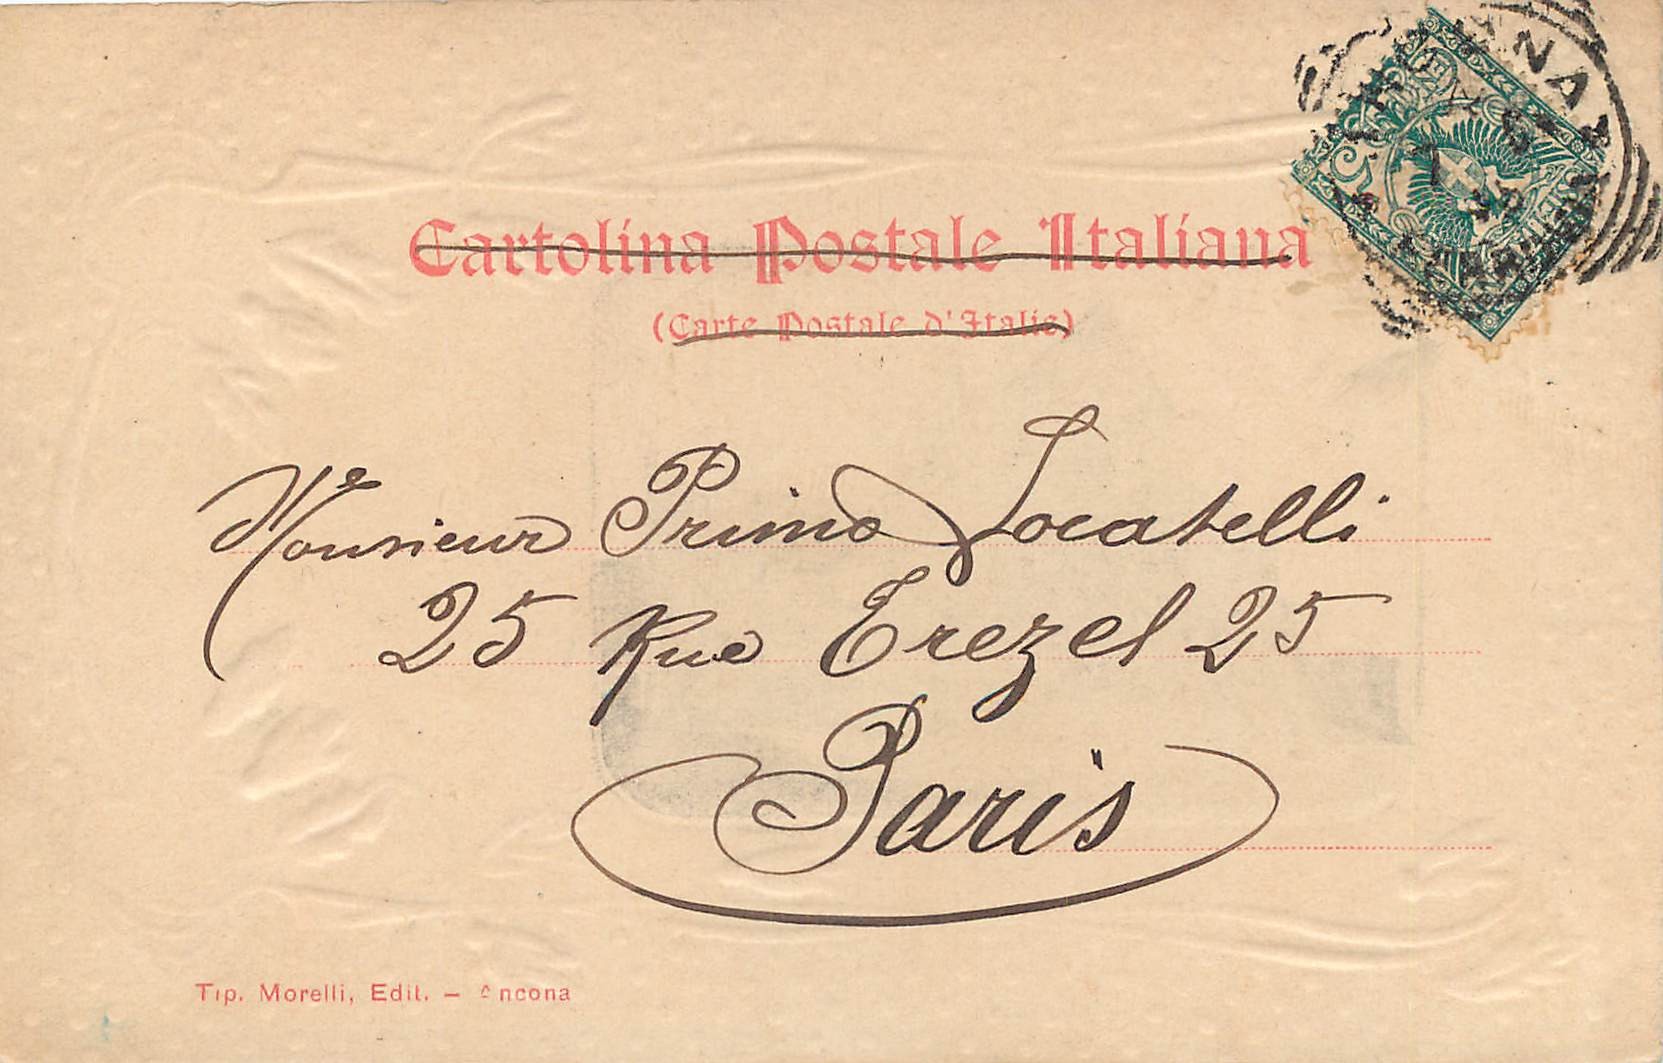 Cartolina Postale Italiana
(Carte Postale d'Italie)
Monsieur Primo Locatelli
25 Rue Erezel 25
Paris
Tip. Morelli, Edit. — Ancona